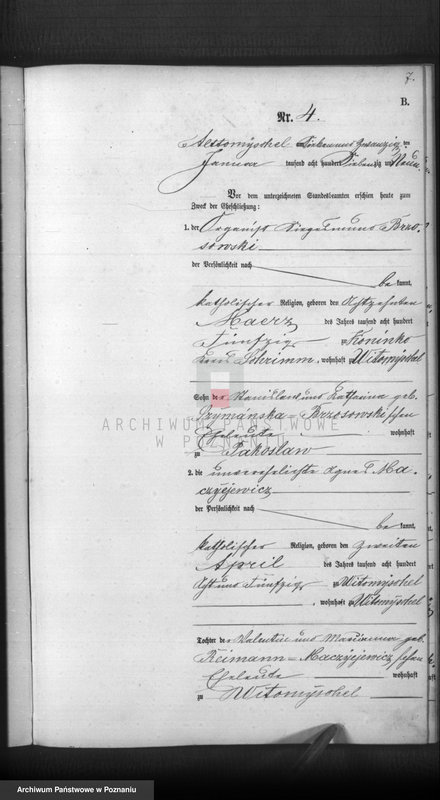 7.
B.
Nr. 4.
Alttomyschel am Siebenundzwanzig ten
Januar tausend acht hundert Siebenzig und Neun
Vor dem unterzeichneten Standesbeamten erschien heute zum
Zweck der Eheschließung:
1. der Organist Siegesmund Brzo-
sowski
der Persönlichkeit nach
be kannt,
katholischer Religion, geboren den Achtzehnten
Maerz des Jahres tausend acht hundert
Fünfzig zu Koninko
Kreis Schrimm, wohnhaft zu Witomyschel
Sohn der Stanislaus und Katharina geb.
Szymánska-Brzosowski'schen
ARCHIWUM PAŃSTWOWE
W POZNANIU
Eheleute wohnhaft
zu Pakoslaw
2. die unverehelichte Agnes Ma-
czyejewicz
der Persönlichkeit nach
be kannt,
katholischer Religion, geboren den zweiten
April des Jahres tausend acht hundert
Acht und Fünfzig zu Witomyschel
, wohnhaft zu Witomyschel
Tochter der Valentin und Marianna geb.
Reimann-Maczyejewicz'schen
Eheleute wohnhaft
zu Witomyschel
Archiwum Państwowe w Poznaniu